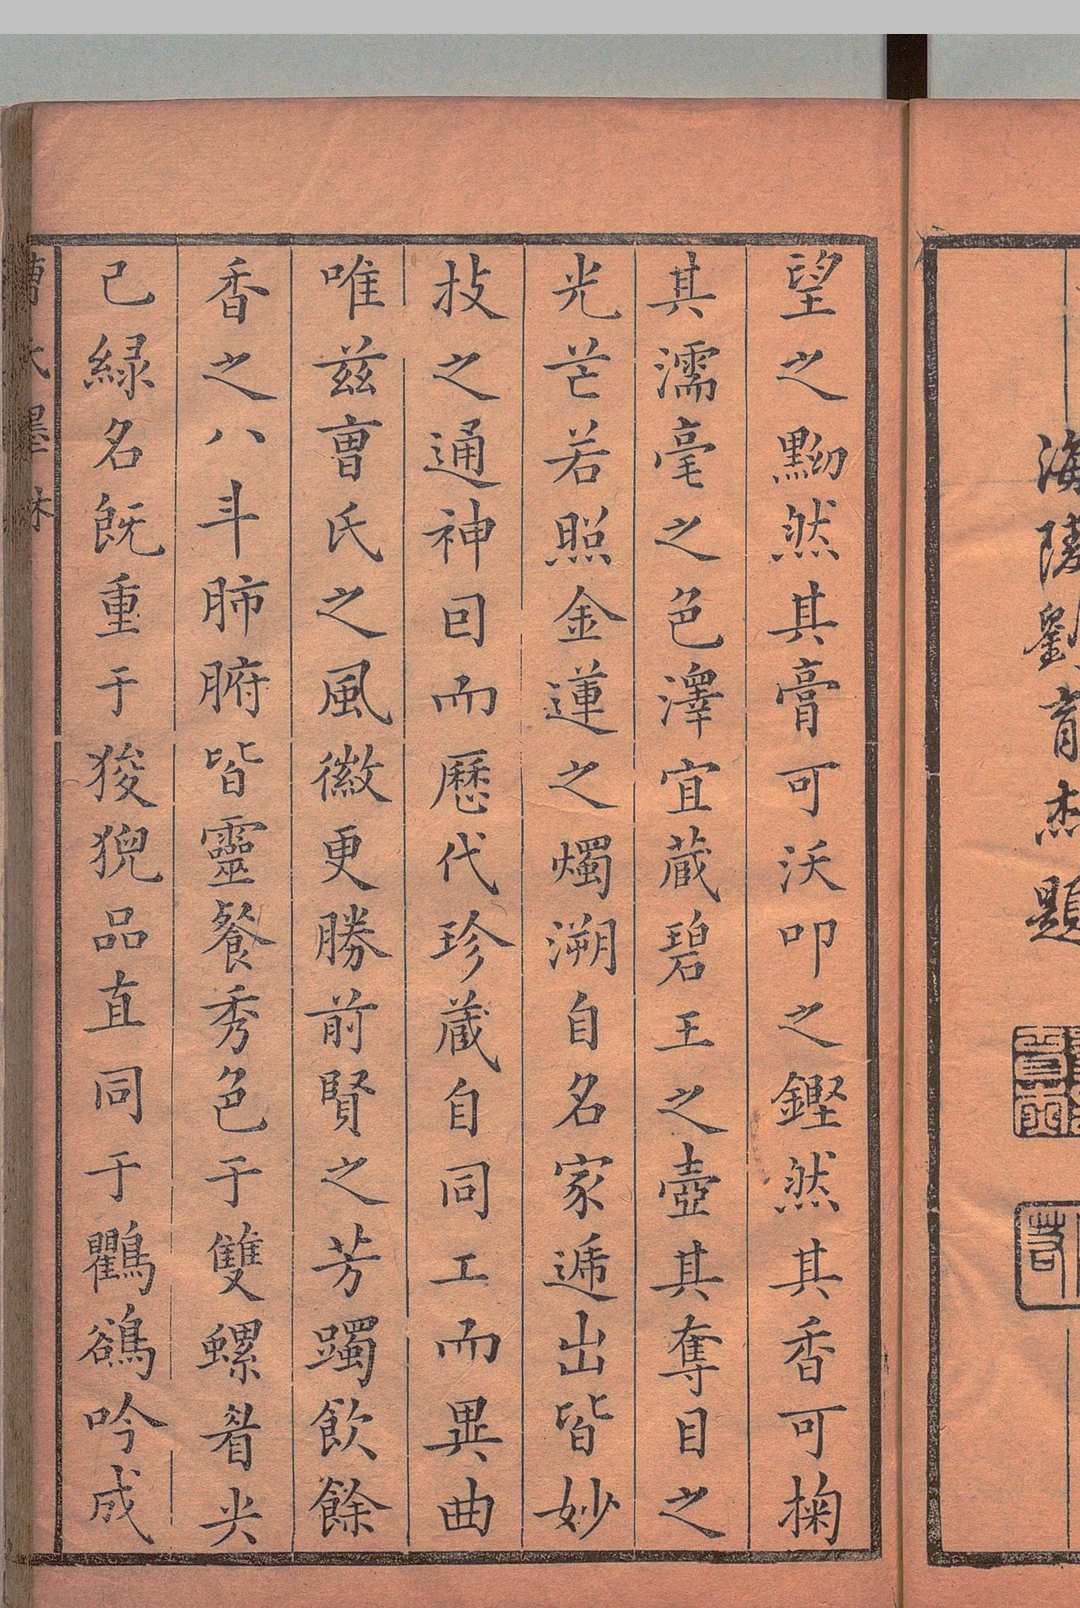 海陵劉育杰題
望之黝然其膏可沃叩之鏗然其香可掬
其濡毫之色澤宜藏碧玉之壺其奪目之
光芒若照金蓮之燭溯自名家遞出皆妙
技之通神囘而歷代珍藏自同工而異曲
唯兹曺氏之風徽更勝前賢之芳躅飲餘
香之八斗肺腑皆靈餐秀色于雙螺眉尖
已綠名旣重于狻猊品直同于鸜鵒吟成
曹氏墨林